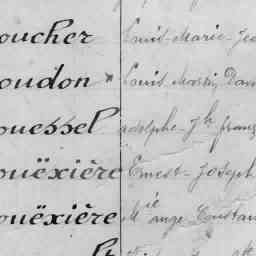 oucher Louis-Marie-Jo
oudon Louis
ouessel adolphe-Jh franç
ouëxière Ernest-Joseph
ouëxière Mie ange Constan